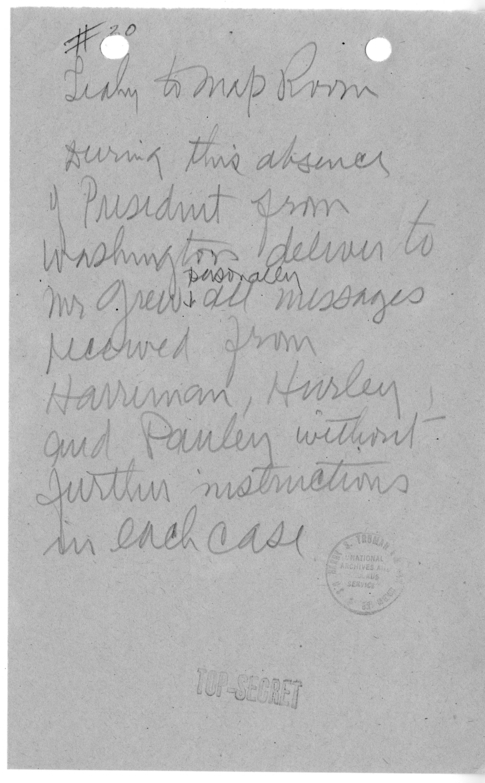 # 20
Leahy to Map Room
During this absence
of President from
Washington deliver to
personally
Mr Grew all messages
received from
Harriman, Hurley,
and Pauley without
further instructions
in each case
HARRY S. TRUMAN
NATIONAL
ARCHIVES AND
RECORDS
SERVICE
TOP-SECRET